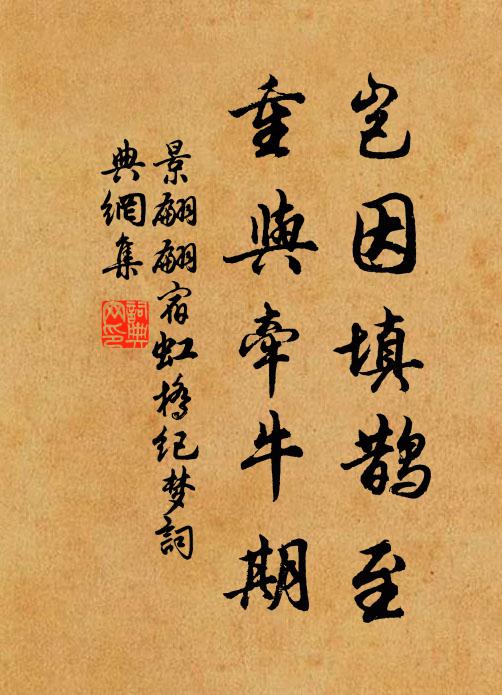 岂因填鹊至
重与牵牛期
景翩翩宿虹桥纪梦詞
典網集
詞典网印